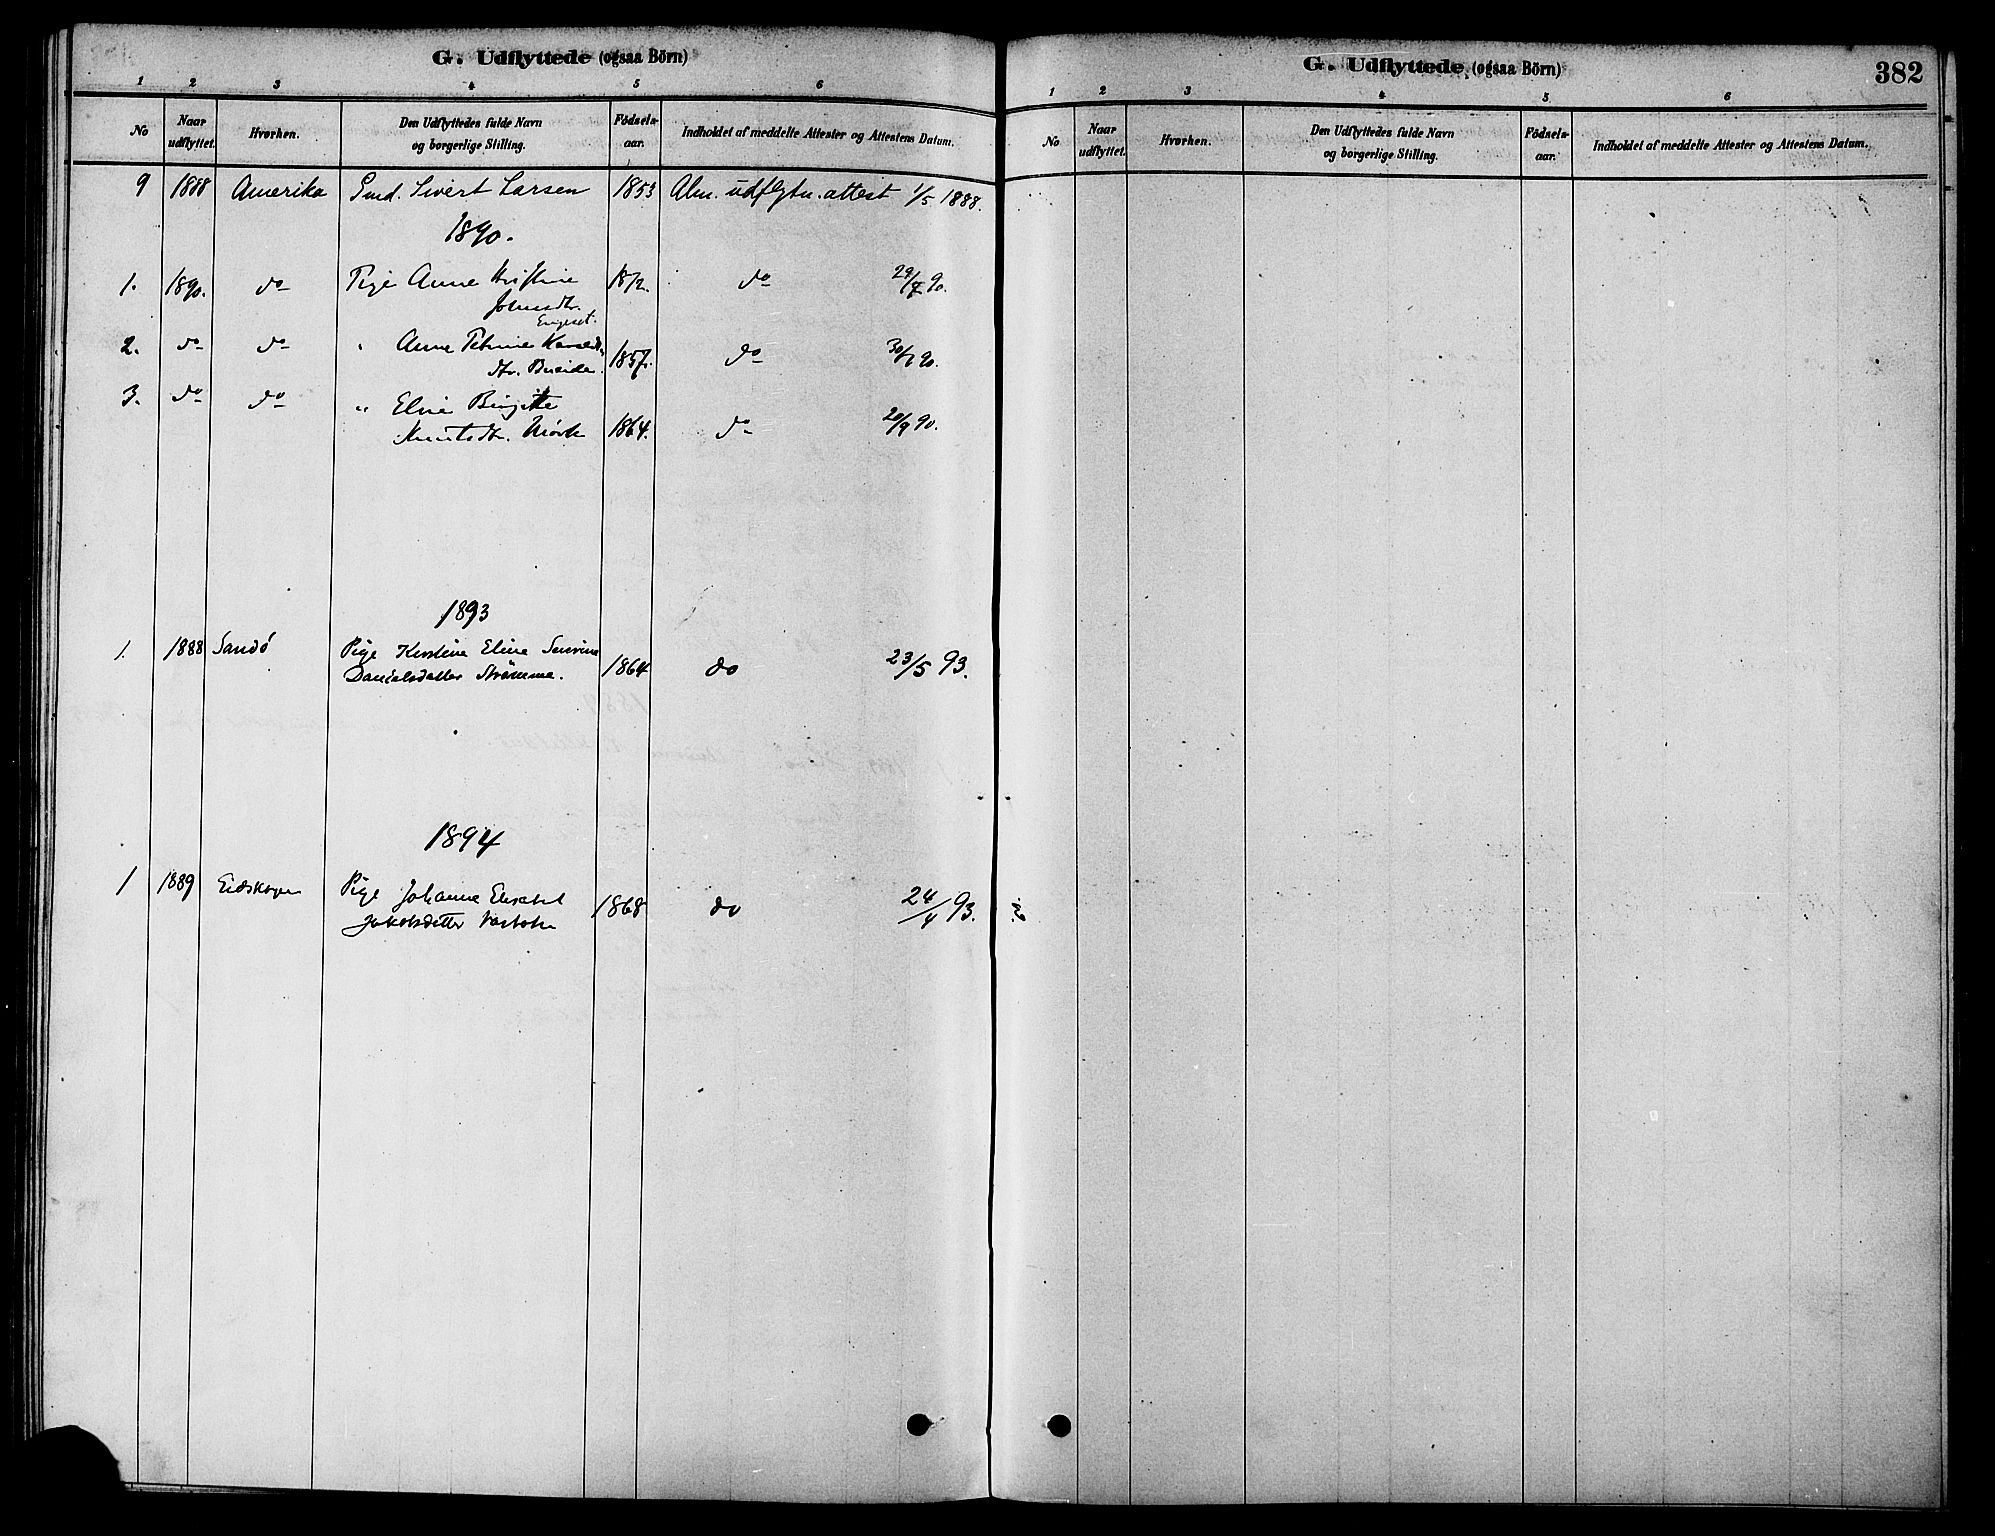 G. Udflyttede (ogsaa Börn)
1 2 3 4 5 6
No Naar udflyttet. Hvorhen. Den Udflyttedes fulde Navn og borgerlige Stilling. Födsels-aar. Indholdet af meddelte Attester og Attestens Datum.
9 1888 Amerika Gmd. Sivert Larsen 1853 Alm. udflytn. attest 1/5 1888.
1890.
1. 1890. do Pige Anne Kristine 1872. do 29/4 90.
Johnsdtr.
Engeset.
2. do do " Anne Petrine 1857. do 90.
dtr.
3. do do " Elise Birgitte
Knutsdtr. Mørk 1864. do 20/9 90.
1893
1. 1888 Sandö Pige Kirstine Eline
Danielsdatter Strömme. 1864 do 23/5 93.
1894
1 1889 Eidskogen Pige Johanne Elisabet
Jakobsdatter 1868 do 24/4 93.
G. Udflyttede (ogsaa Börn)
382
1 2 3 4 5 6
No Naar udflyttet. Hvorhen. Den Udflyttedes fulde Navn og borgerlige Stilling. Födsels-aar. Indholdet af meddelte Attester og Attestens Datum.